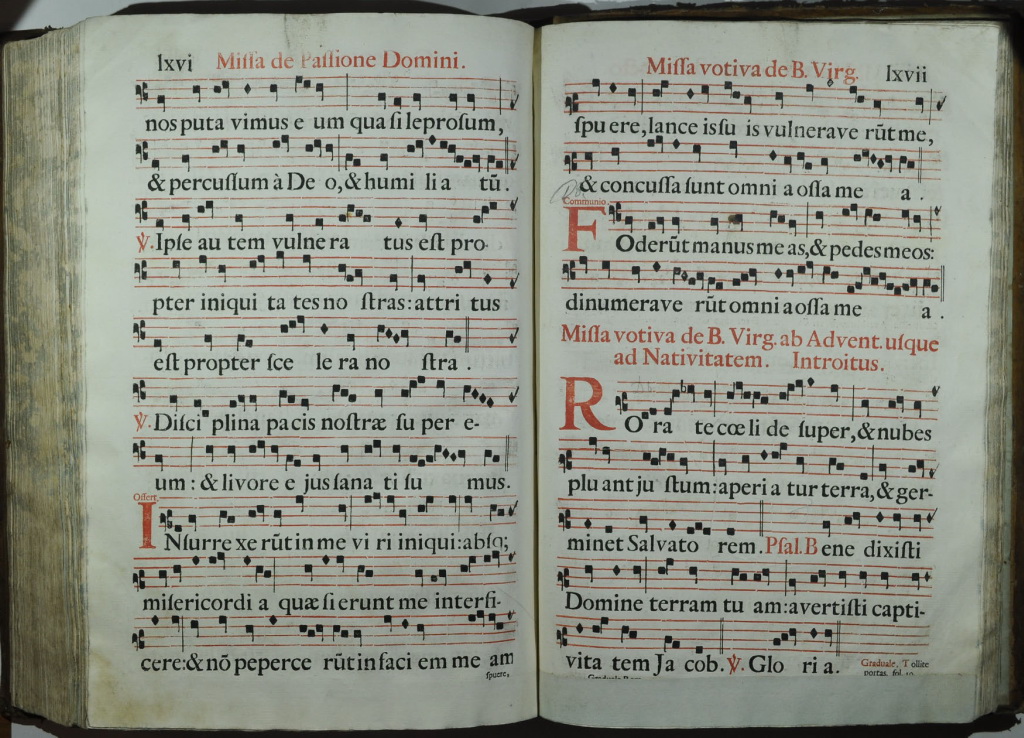 lxvi Missa de Passione Domini.
nos puta vimus e um qua si leprosum,
& percussum à De o, & humi li a tū.
℣. Ipse au tem vulne ra tus est pro-
pter iniqui ta tes no stras: attri tus
est propter sce le ra no stra.
℣. Disci plina pacis nostræ su per e-
um: & livore e jus sana ti su mus.
Offert.
INsurre xe rūt in me vi ri iniqui: absq;
misericordi a quæ si erunt me interfi-
cere: & nō peperce rūt in faci em me am
spuere,
Missa votiva de B. Virg. lxvii
spu ere, lance is su is vulnerave rūt me,
& concussa sunt omni a ossa me a.
Communio.
FOderūt manus me as, & pedes meos:
dinumerave rūt omni a ossa me a.
Missa votiva de B. Virg. ab Advent. usque
ad Nativitatem. Introitus.
RO ra te cœ li de super, & nubes
plu ant ju stum: aperi a tur terra, & ger-
minet Salvato rem. Psal. Bene dixisti
Domine terram tu am: avertisti capti-
vita tem Ja cob. ℣. Glo ri a.
Graduale, Tollite
portas, fol.